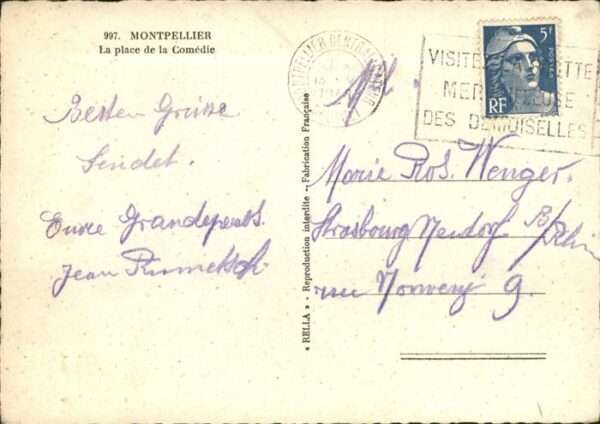 997. MONTPELLIER
La place de la Comédie
Besten Grüsse
Sendet.
Eure Grandeparents.
Jean
« RELLA » - Reproduction interdite - Fabrication Française
MONTPELLIER CENTRAL
VISITEZ LA GROTTE
MERVEILLEUSE
DES DEMOISELLES
5F
POSTES
RF
Mll.
Marie Ros. Wenger.
Strasbourg Neudorf B/Rhin
rue 9.